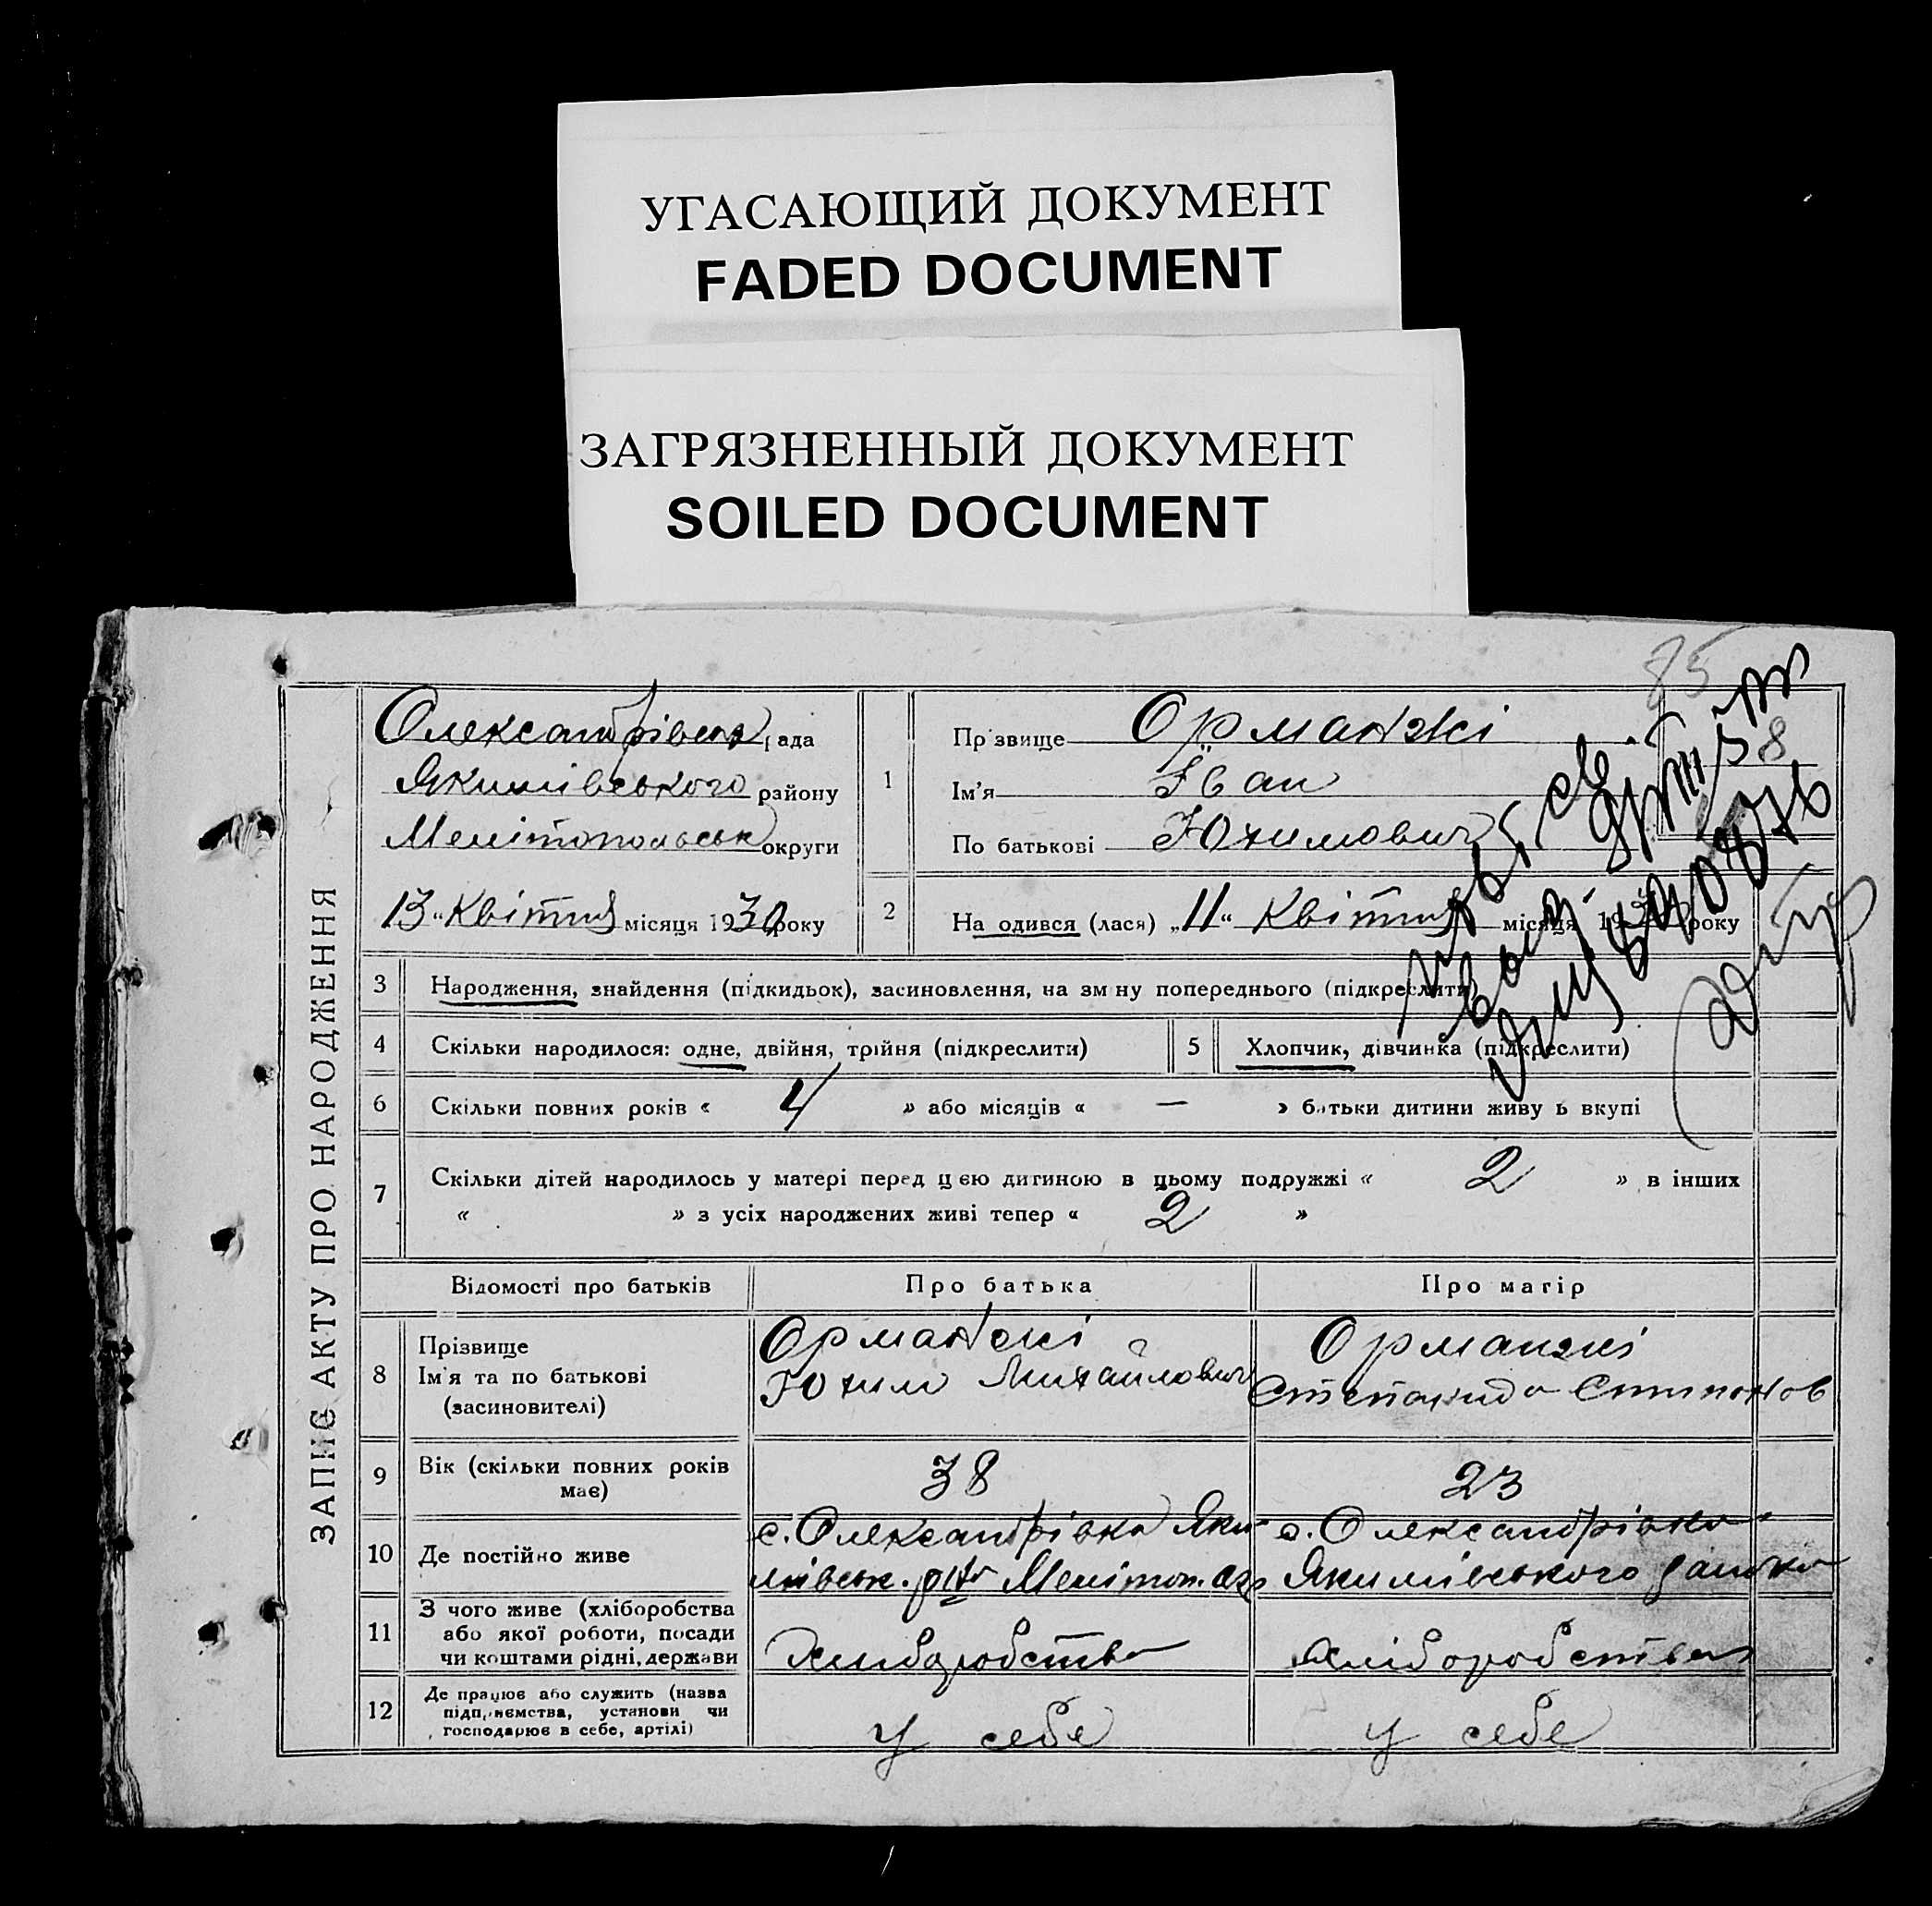 УГАСАЮЩИЙ ДОКУМЕНТ
FADED DOCUMENT
ЗАГРЯЗНЕННЫЙ ДОКУМЕНТ
SOILED DOCUMENT
85
58
ЗАПИС АКТУ ПРО НАРОДЖЕННЯ
Олександрівська рада
Якимівського району
Мелітопольськ округи
13 " Квітня місяця 1930 року
1
Прізвище Орманжі
Ім'я Іван
По батькові Юхимович
2 На одився (лася) „ 11 " Квітня місяця 19 року
3 Народження, знайдення (підкидьок), засиновлення, на зм ну попереднього (підкреслити)
4 Скільки народилося: одне, двійня, трійня (підкреслити)
5 Хлопчик, дівчинка (підкреслити)
6 Скільки повних років « 4 » або місяців « — » батьки дитини живу ь вкупі
7 Скільки дітей народилось у матері перед цією дитиною в цьому подружжі « 2 » в інших
« » з усіх народжених живі тепер « 2 »
Відомості про батьків Про батька Про матір
8 Прізвище
Ім'я та по батькові
(засиновителі)
Орманжі
Юхим Михайлович
Орманжі
Степанида
9 Вік (скільки повних років
має)
38
23
10 Де постійно живе
с. Олександрівка Яки-
мівськ. р-ну Мелітоп.
с. Олександрівка
Якимівського району
11 З чого живе (хліборобства
або якої роботи, посади
чи коштами рідні, держави
Хліборобство
Хліборобство
12 Де працює або служить (назва
підприємства, установи чи
господарює в себе, артілі)
у себе
у себе